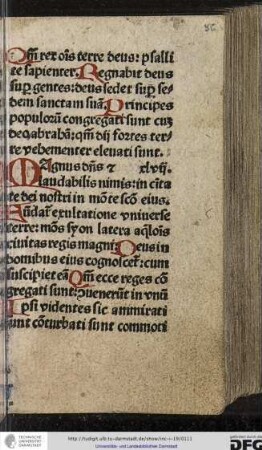 Qm̄ rex oīs terre deus: psalli
te sapienter. Regnabit deus
sup̲ gentes: deus sedet sup̲ se⸗
dem sanctam suā. Principes
populorū congregati sunt cuʒ
deo abrahā: qm̄ dij fortes ter⸗
re vehementer eleuati sunt.
Magnus dn̄s ⁊ xlvij.
laudabilis nimis: in ciuita
te dei nostri in mōte scō eius.
Fūdat̄ exultatione vniuerse
terre: mōs syon latera aq̄lōis
ciuitas regis magni. Deus in
domibus eius cognoscet̄: cum
suscipiet eā. Qm̄ ecce reges cō
gregati sunt: ꝯuenerūt in vnū
Ipsi videntes sic ammirati
sunt cōturbati sunt commoti
TECHNISCHE UNIVERSITÄT DARMSTADT
http://tudigit.ulb.tu-darmstadt.de/show/inc-i-19/0111
Universitäts- und Landesbibliothek Darmstadt
DFG